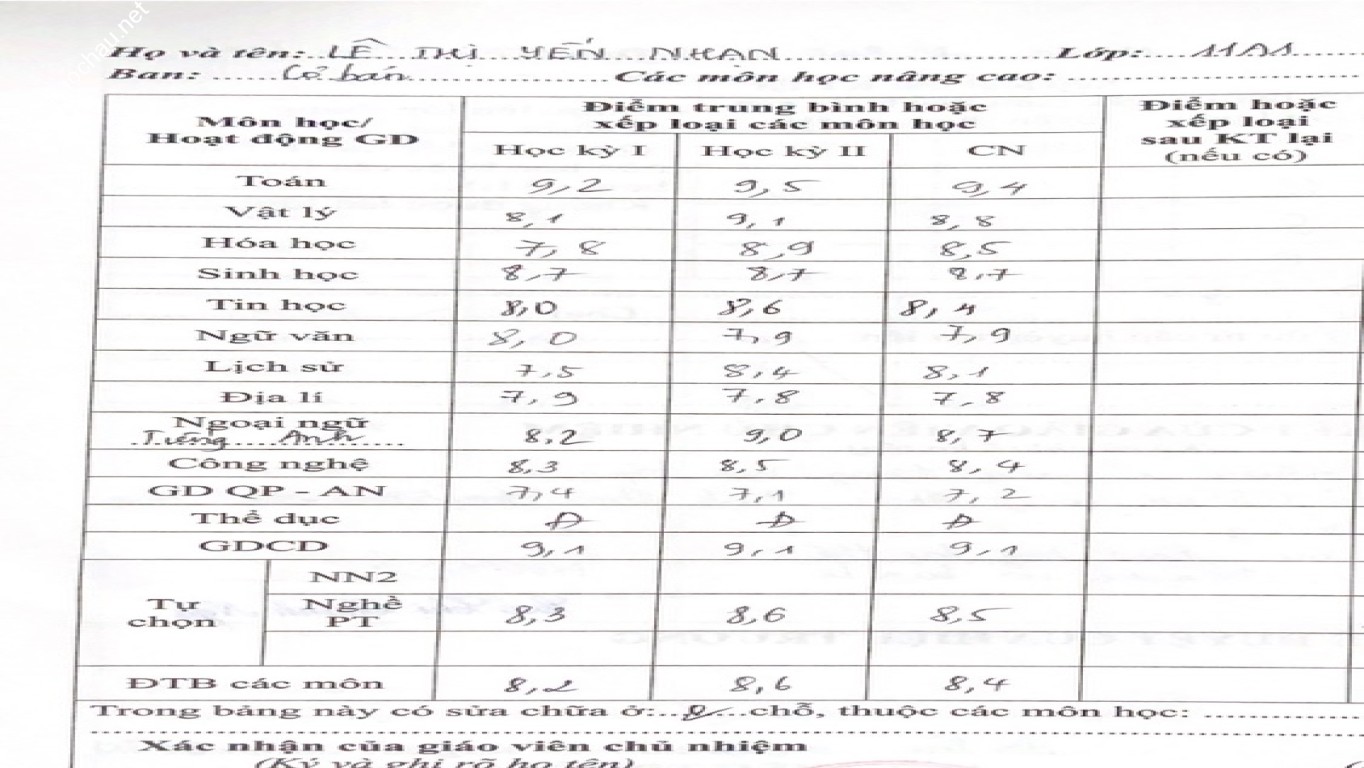 Họ và tên: LÊ THỊ YẾN NHAN Lớp: 11A1
Ban: Cơ bản Các môn học nâng cao:
Môn học/ Hoạt động GD Điểm trung bình hoặc xếp loại các môn học Điểm hoặc xếp loại sau KT lại (nếu có)
Học kỳ I Học kỳ II CN
Toán 9,2 9,5 9,4
Vật lý 8,1 9,1 8,8
Hóa học 7,8 8,9 8,5
Sinh học 8,7 8,7 8,7
Tin học 8,0 8,6 8,4
Ngữ văn 8,0 7,9 7,9
Lịch sử 7,5 8,4 8,1
Địa lí 7,9 7,8 7,8
Ngoại ngữ
Tiếng Anh 8,2 9,0 8,7
Công nghệ 8,3 8,5 8,4
GD QP - AN 7,4 7,1 7,2
Thể dục Đ Đ Đ
GDCD 9,1 9,1 9,1
Tự chọn NN2
Nghề PT 8,3 8,6 8,5
ĐTB các môn 8,2 8,6 8,4
Trong bảng này có sửa chữa ở: chỗ, thuộc các môn học:
Xác nhận của giáo viên chủ nhiệm
(Ký và ghi rõ họ tên)